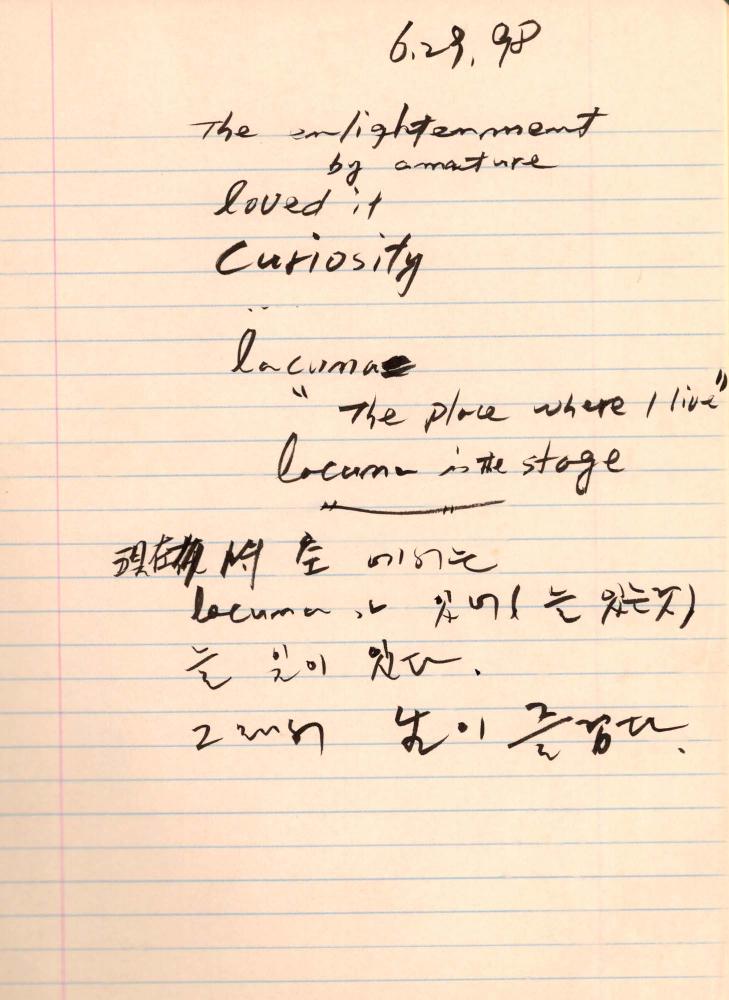 6.29.98
The enlightenment
by amature
loved it
Curiosity
lacuna
"The place where I live"
lacuna is the stage
現在 에서는
lacuna 가 있어 (늘 있는 것)
늘 있다.
그래서 生이 즐겁다.